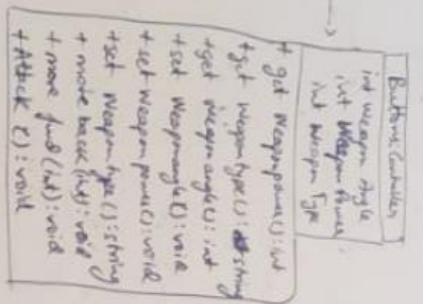 Buttons Controller
int Weapon Angle
int Weapon Power
int Weapon Type
+ get Weapon power(): int
+ get Weapon type(): string
+ get Weapon angle(): int
+ set Weapon angle(): void
+ set Weapon power(): void
+ set Weapon type(): string
+ move back (int): void
+ move fwd (int): void
+ Attack (): void